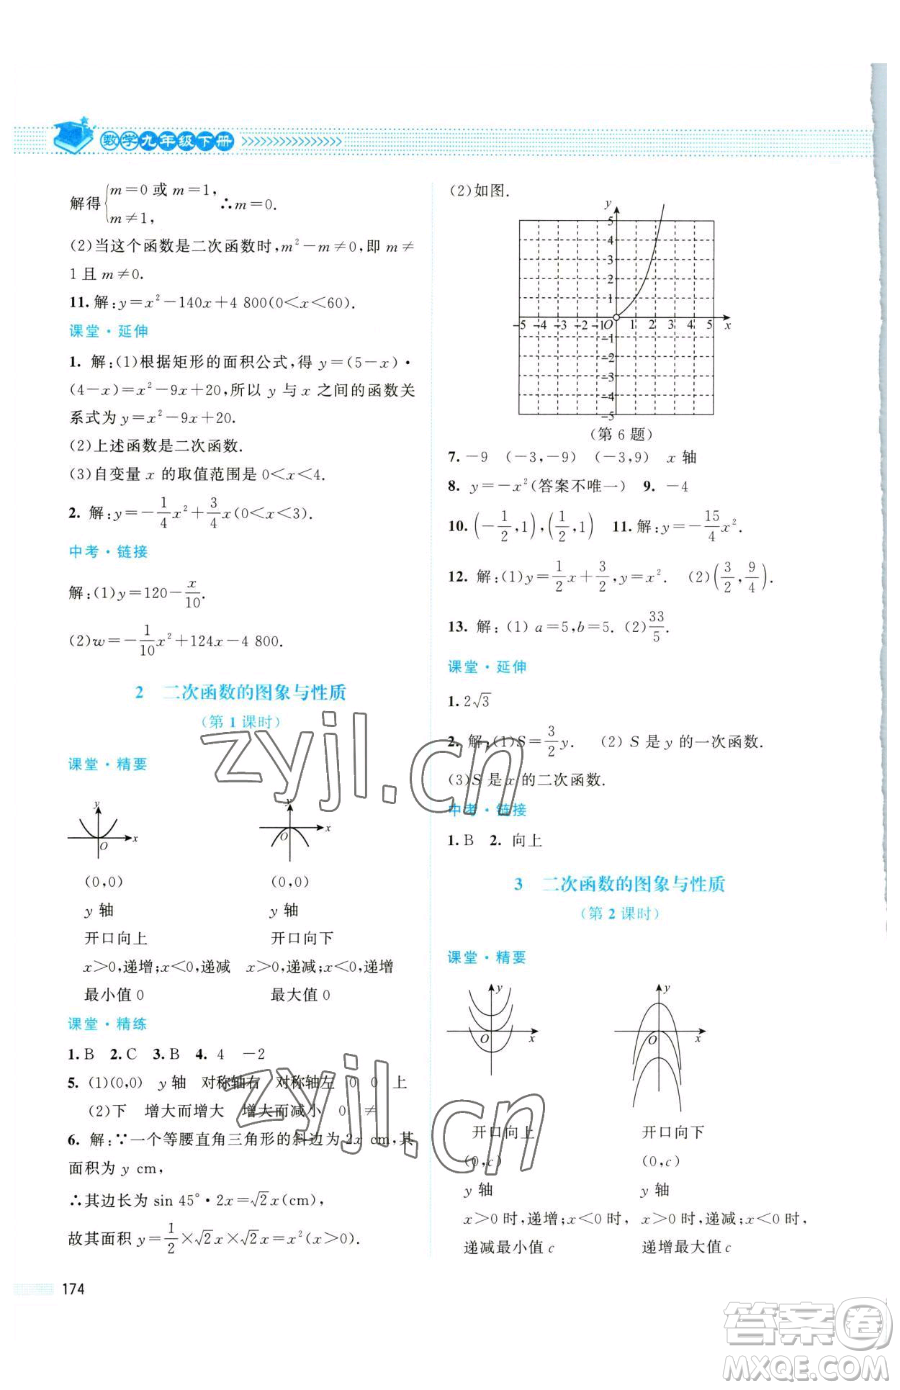 数学九年级下册
解得{m=0 或 m=1, m≠1, ∴m=0.
(2)当这个函数是二次函数时,m²-m≠0,即 m≠
1 且 m≠0.
11. 解:y=x²-140x+4 800(0<x<60).
课堂·延伸
1. 解:(1)根据矩形的面积公式,得 y=(5-x)·
(4-x)=x²-9x+20,所以 y 与 x 之间的函数关
系式为 y=x²-9x+20.
(2)上述函数是二次函数.
(3)自变量 x 的取值范围是 0<x<4.
2. 解:y=-1/4x²+3/4x(0<x<3).
中考·链接
解:(1)y=120-x/10.
(2)w=-1/10x²+124x-4 800.
2 二次函数的图象与性质
(第 1 课时)
课堂·精要
y O x
y O x
(0,0) (0,0)
y 轴 y 轴
开口向上 开口向下
x>0,递增;x<0,递减 x>0,递减;x<0,递增
最小值 0 最大值 0
课堂·精练
1. B 2. C 3. B 4. 4 -2
5. (1)(0,0) y 轴 对称轴右 对称轴左 0 0 上
(2)下 增大而增大 增大而减小 0 ≠
6. 解:∵一个等腰直角三角形的斜边为 2x cm,其
面积为 y cm,
∴其边长为 sin 45°·2x=√2x(cm),
故其面积 y=1/2×√2x×√2x=x²(x>0).
174
(2)如图.
y
5
4
3
2
1
-5 -4 -3 -2 -1 O 1 2 3 4 5 x
-1
-2
-3
-4
-5
(第 6 题)
7. -9 (-3,-9) (-3,9) x 轴
8. y=-x²(答案不唯一) 9. -4
10. (-1/2,1),(1/2,1) 11. 解:y=-15/4x².
12. 解:(1)y=1/2x+3/2,y=x². (2)(3/2,9/4).
13. 解:(1) a=5,b=5. (2)33/5.
课堂·延伸
1. 2√3
2. 解:(1)S=3/2y. (2) S 是 y 的一次函数.
(3)S 是 x 的二次函数.
中考·链接
1. B 2. 向上
3 二次函数的图象与性质
(第 2 课时)
课堂·精要
y O x
y O x
开口向上 开口向下
(0,c) (0,c)
y 轴 y 轴
x>0 时,递增;x<0 时, x>0 时,递减;x<0 时,
递减最小值 c 递增最大值 c
zyjl.cn
zyjl.cn
答案卷
MXQE.COM